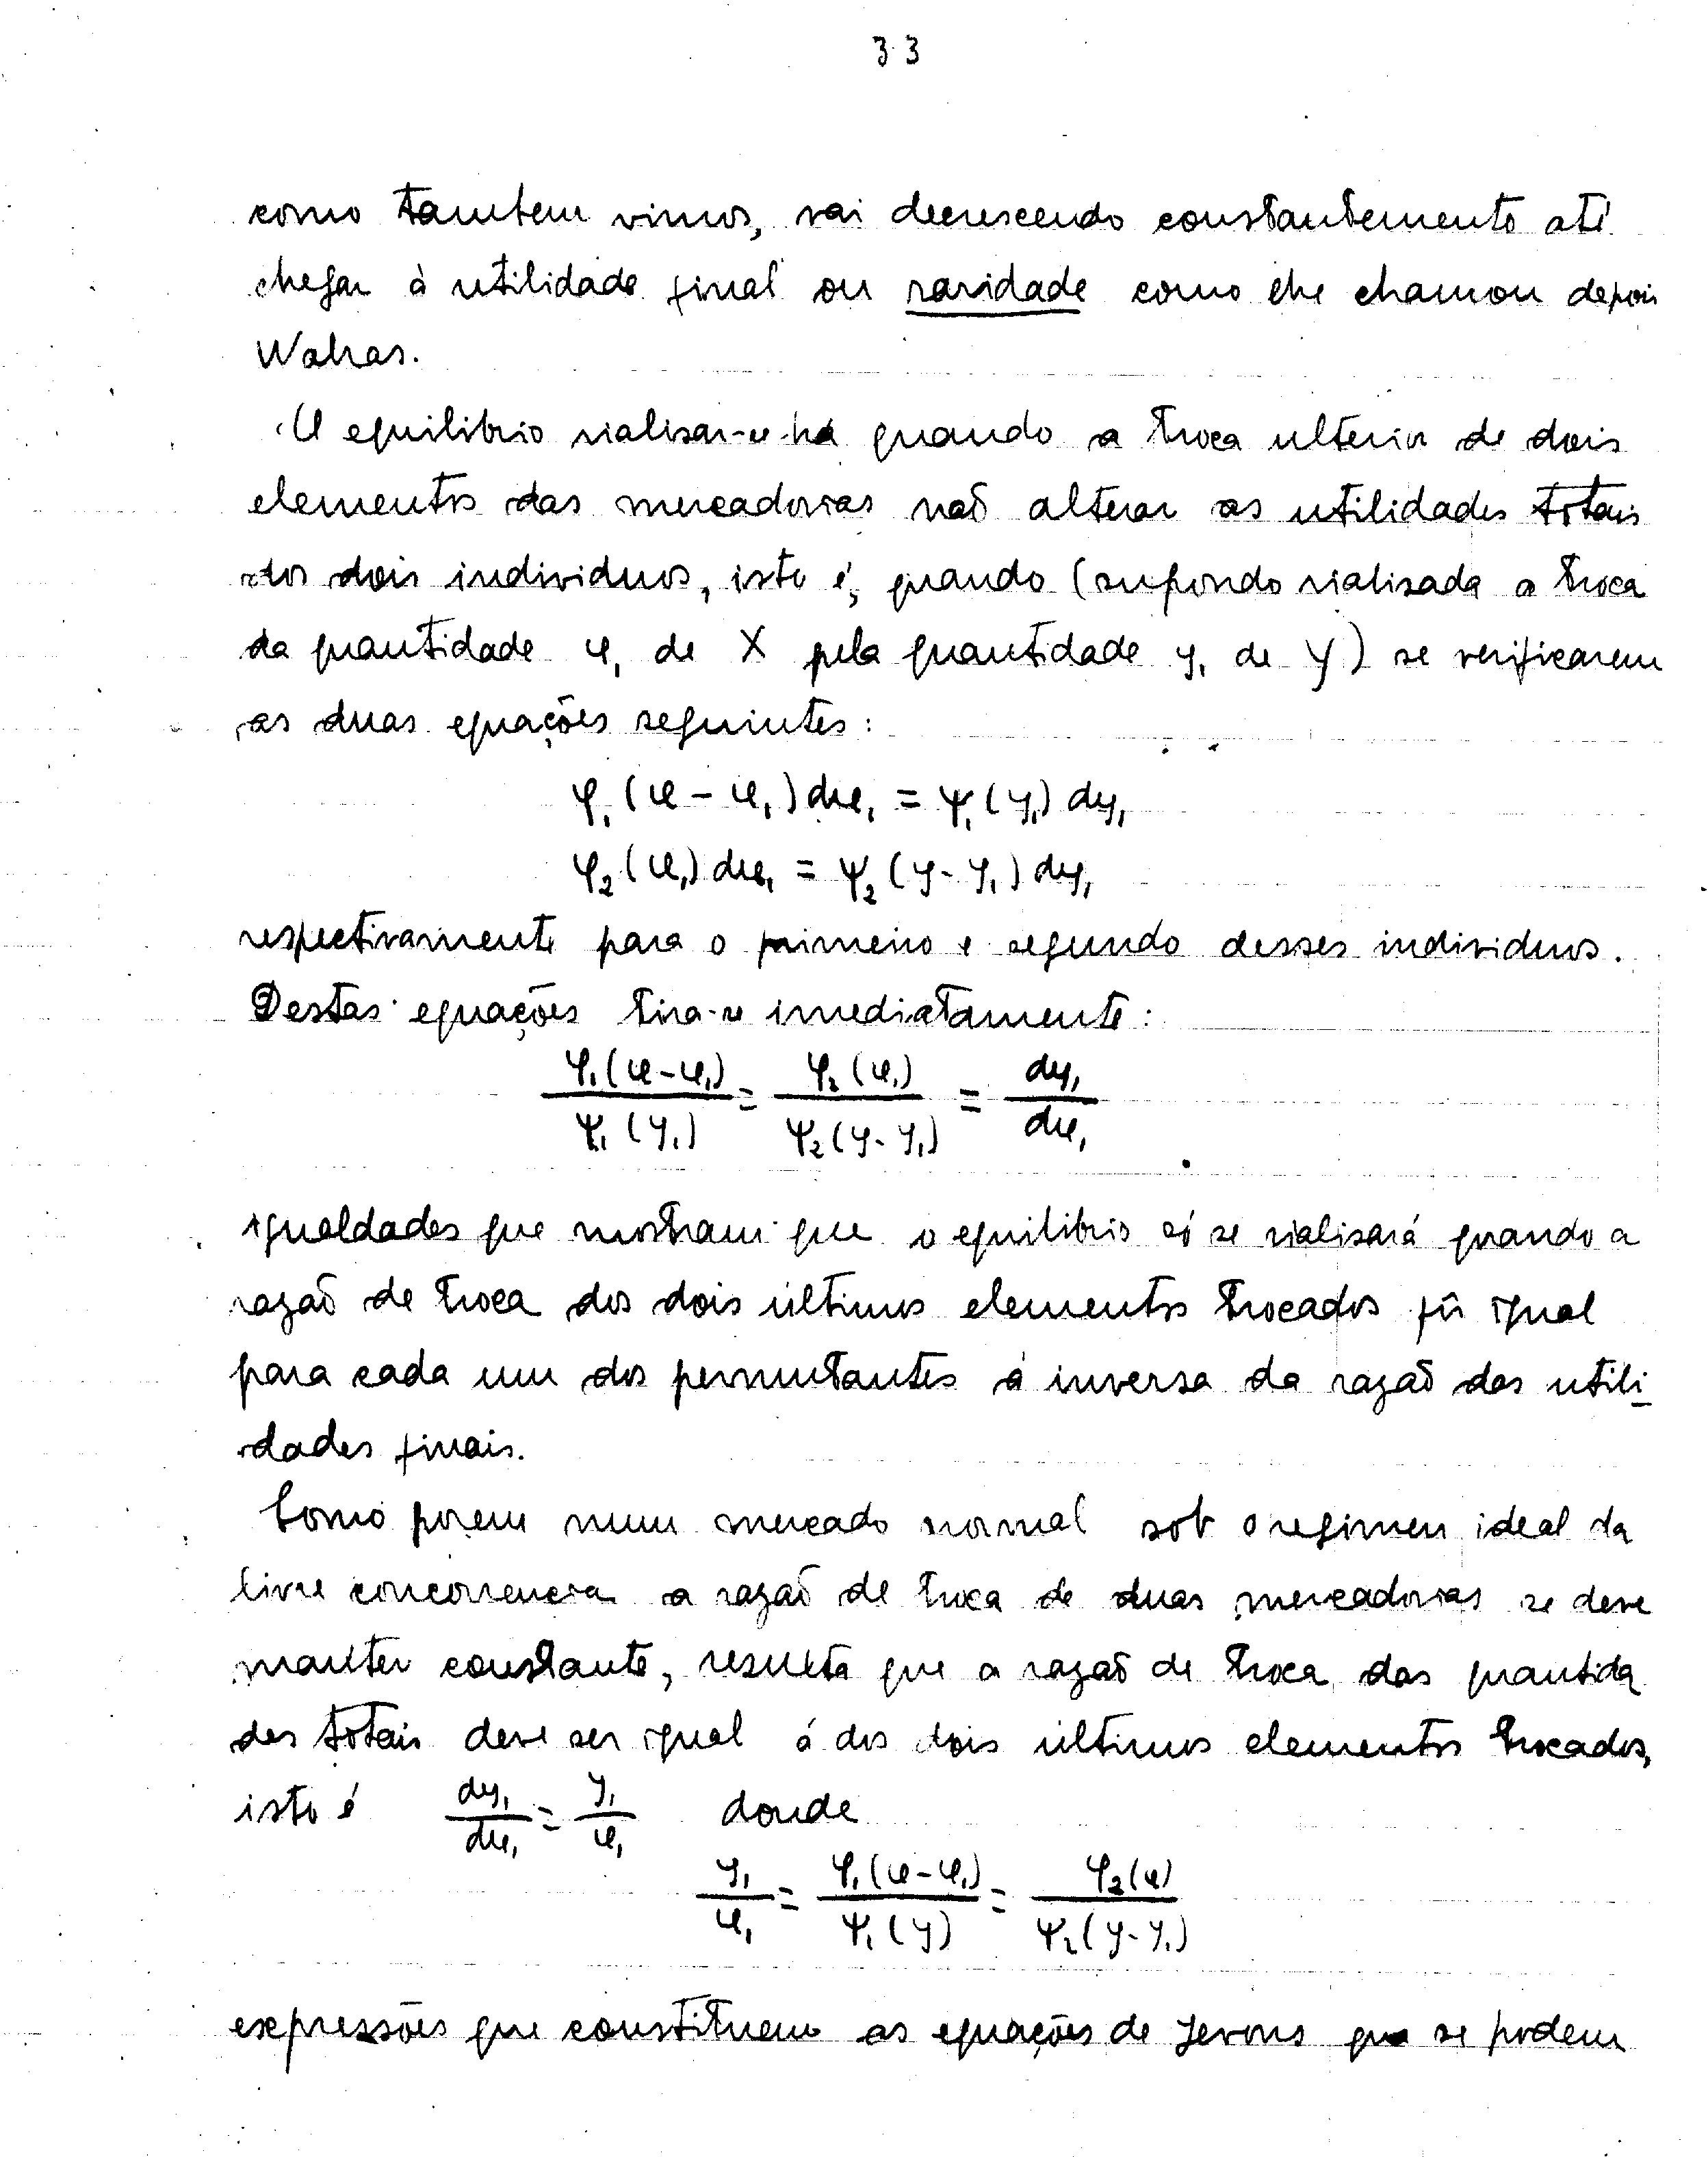 33
como tambem vimos, vai decrescendo constantemente até
chegar à utilidade final ou raridade como lhe chamou depois
Walras.
O equilibrio rialisar-se-há quando a troca ulterior de dois
elementos das mercadorias naõ alterar as utilidades totais
dos dois individuos, isto é, quando (supondo rialisada a troca
da quantidade x₁ de X pela quantidade y₁ de Y) se verificarem
as duas equações seguintes:
φ₁(x - x₁) dx₁ = ψ₁(y₁) dy₁
φ₂(x₁) dx₁ = ψ₂(y - y₁) dy₁
respectivamente para o primeiro e segundo desses individuos.
Destas equações tira-se imediatamente:
φ₁(x - x₁)/ψ₁(y₁) = φ₂(x₁)/ψ₂(y - y₁) = dy₁/dx₁
igualdades que mostram que o equilibrio só se rialisará quando a
razaõ de troca dos dois ultimos elementos trocados fôr igual
para cada um dos permutantes á inversa da razaõ das utili-
dades finais.
Como porem num mercado normal sob o regimen ideal da
livre concorrencia a razaõ de troca de duas mercadorias se deve
manter constante, resulta que a razaõ de troca das quantida
des totais deve ser igual á dos dois ultimos elementos trocados,
isto é dy₁/dx₁ = y₁/x₁ donde
y₁/x₁ = φ₁(x - x₁)/ψ₁(y) = φ₂(x)/ψ₂(y - y₁)
expressões que constituem as equações de Jevons que se podem